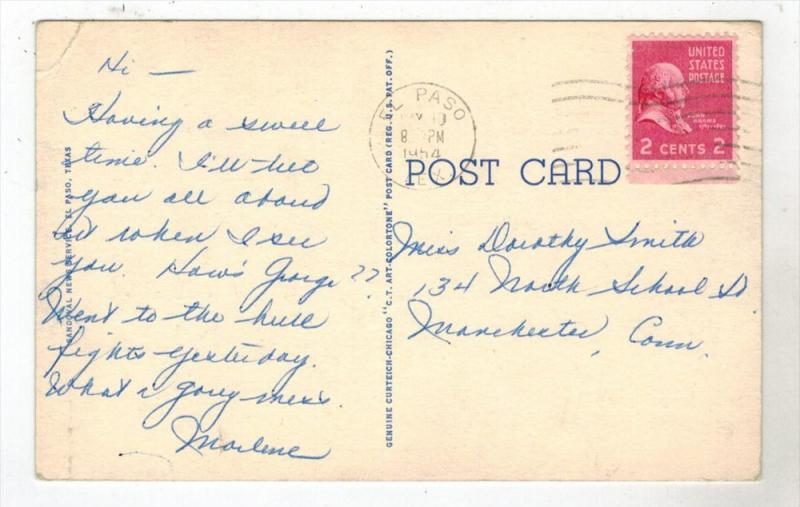 Hi —
Having a swell
time. I'll tell
you all about
it when I see
you. How's George??
Went to the bull
fights yesterday.
What a gory mess.
Marlene
SANDOVAL NEWS SERVICE, EL PASO, TEXAS
GENUINE CURTEICH-CHICAGO "C.T. ART-COLORTONE" POST CARD (REG. U.S. PAT. OFF.)
EL PASO
8 PM
1954
TEX.
UNITED
STATES
POSTAGE
JOHN
ADAMS
2 CENTS 2
POST CARD
Miss Dorothy Smith
134 North School St
Manchester, Conn.